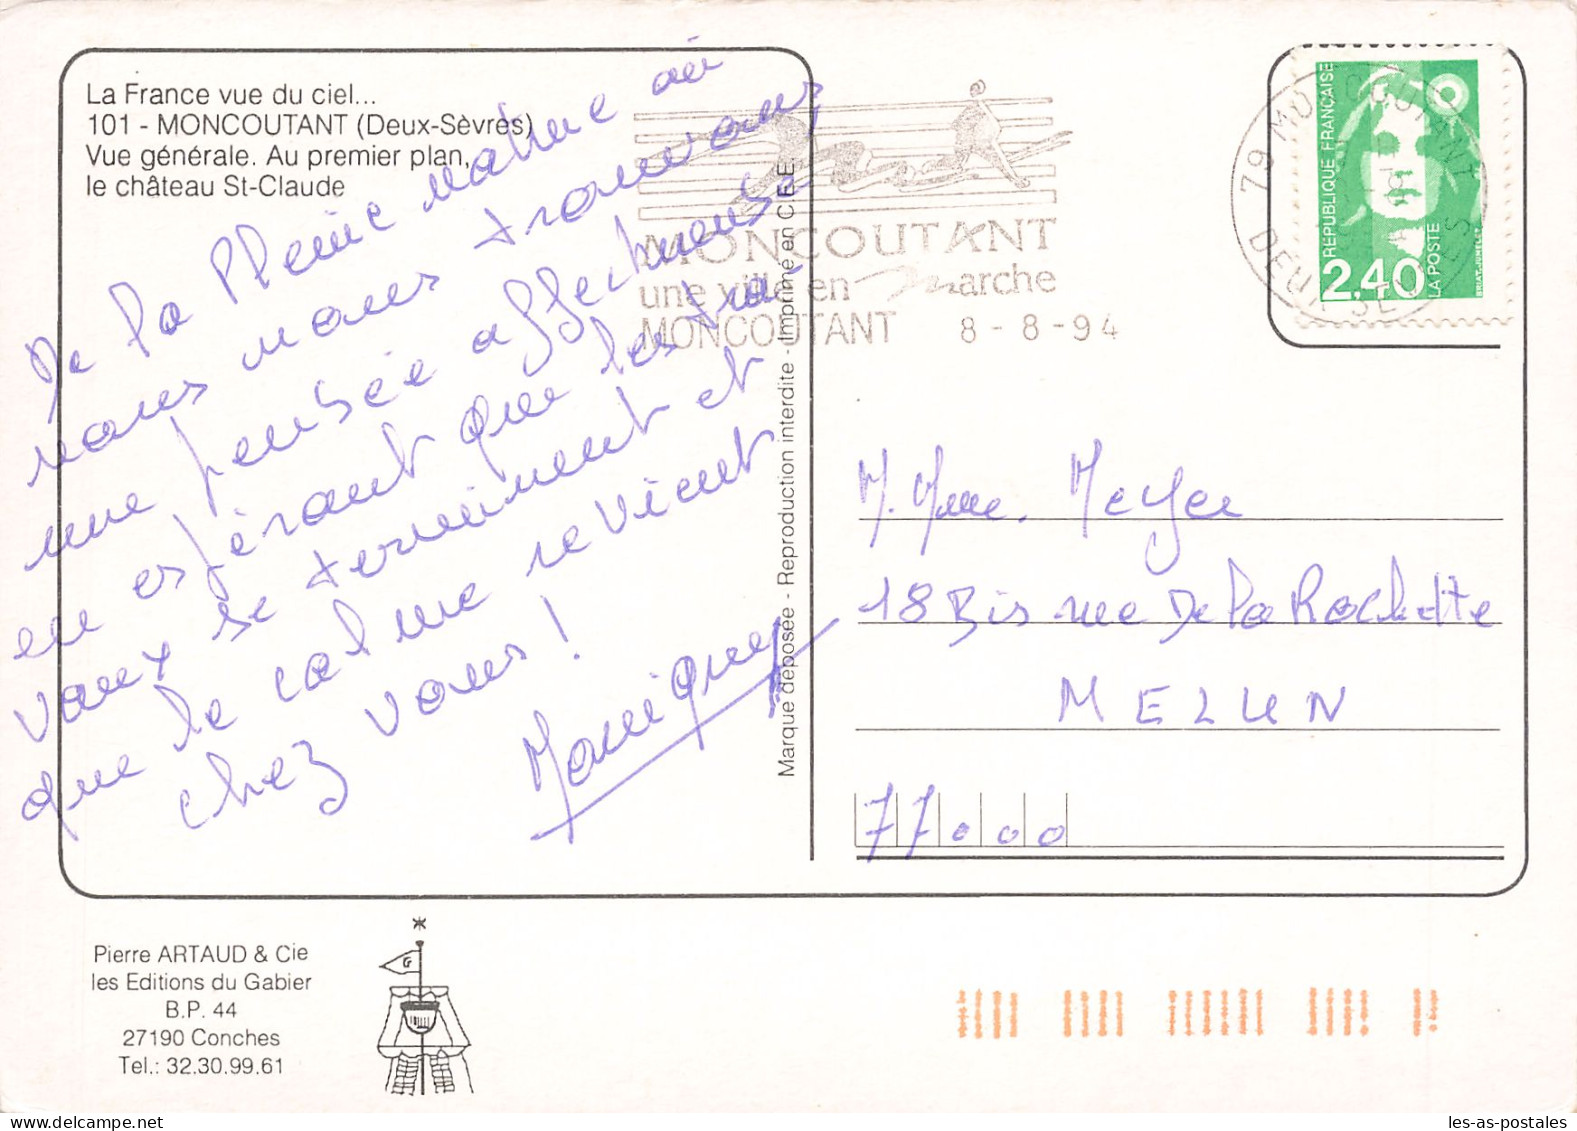 La France vue du ciel...
101 - MONCOUTANT (Deux-Sèvres)
Vue générale. Au premier plan,
le château St-Claude
De la Pleine nature où
nous nous trouvons,
une pensée affectueuse
en espérant que les tra-
vaux se terminent et
que le calme revient
chez vous !
Marque déposée - Reproduction interdite - Imprimé en C E E
MONCOUTANT
une ville en Marche
MONCOUTANT 8 - 8 - 94
79 MONCOUTANT
DEUX-SEVRES
REPUBLIQUE FRANÇAISE
2,40
LA POSTE
BRIAT-JUMELET
M. Mme. Meyer
18 Bis rue De la Rochette
MELUN
77000
Pierre ARTAUD & Cie
les Editions du Gabier
B.P. 44
27190 Conches
Tel.: 32.30.99.61
G
les-as-postales